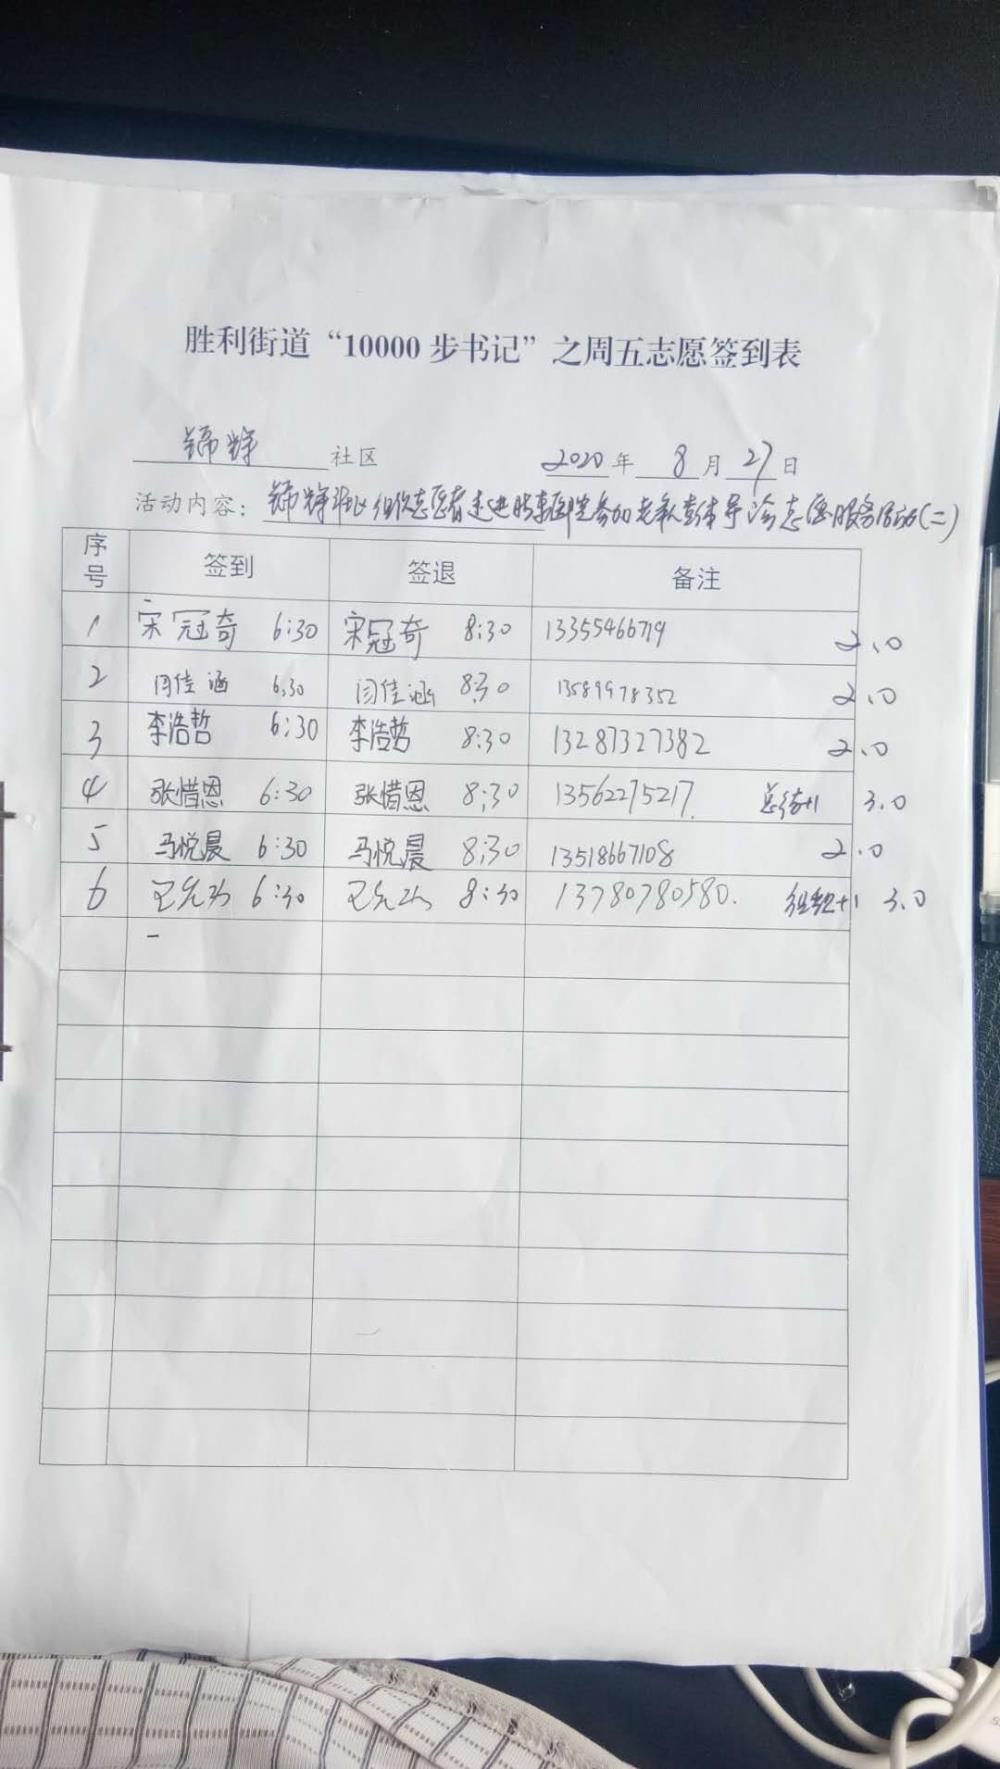 胜利街道“10000步书记”之周五志愿签到表
锦辉 社区 2020年 8月 27日
活动内容：锦辉社区组织志愿者走进胜利医院参加 导诊志愿服务活动(二)
序号 签到 签退 备注
1 宋冠奇 6:30 宋冠奇 8:30 13355466719 2.0
2 闫佳涵 6:30 闫佳涵 8:30 13589978352 2.0
3 李浩哲 6:30 李浩哲 8:30 13287327382 2.0
4 张惜恩 6:30 张惜恩 8:30 13562275217. 总结+1 3.0
5 马悦晨 6:30 马悦晨 8:30 13518667108 2.0
6 6:30 8:30 13780780580. 组织+1 3.0